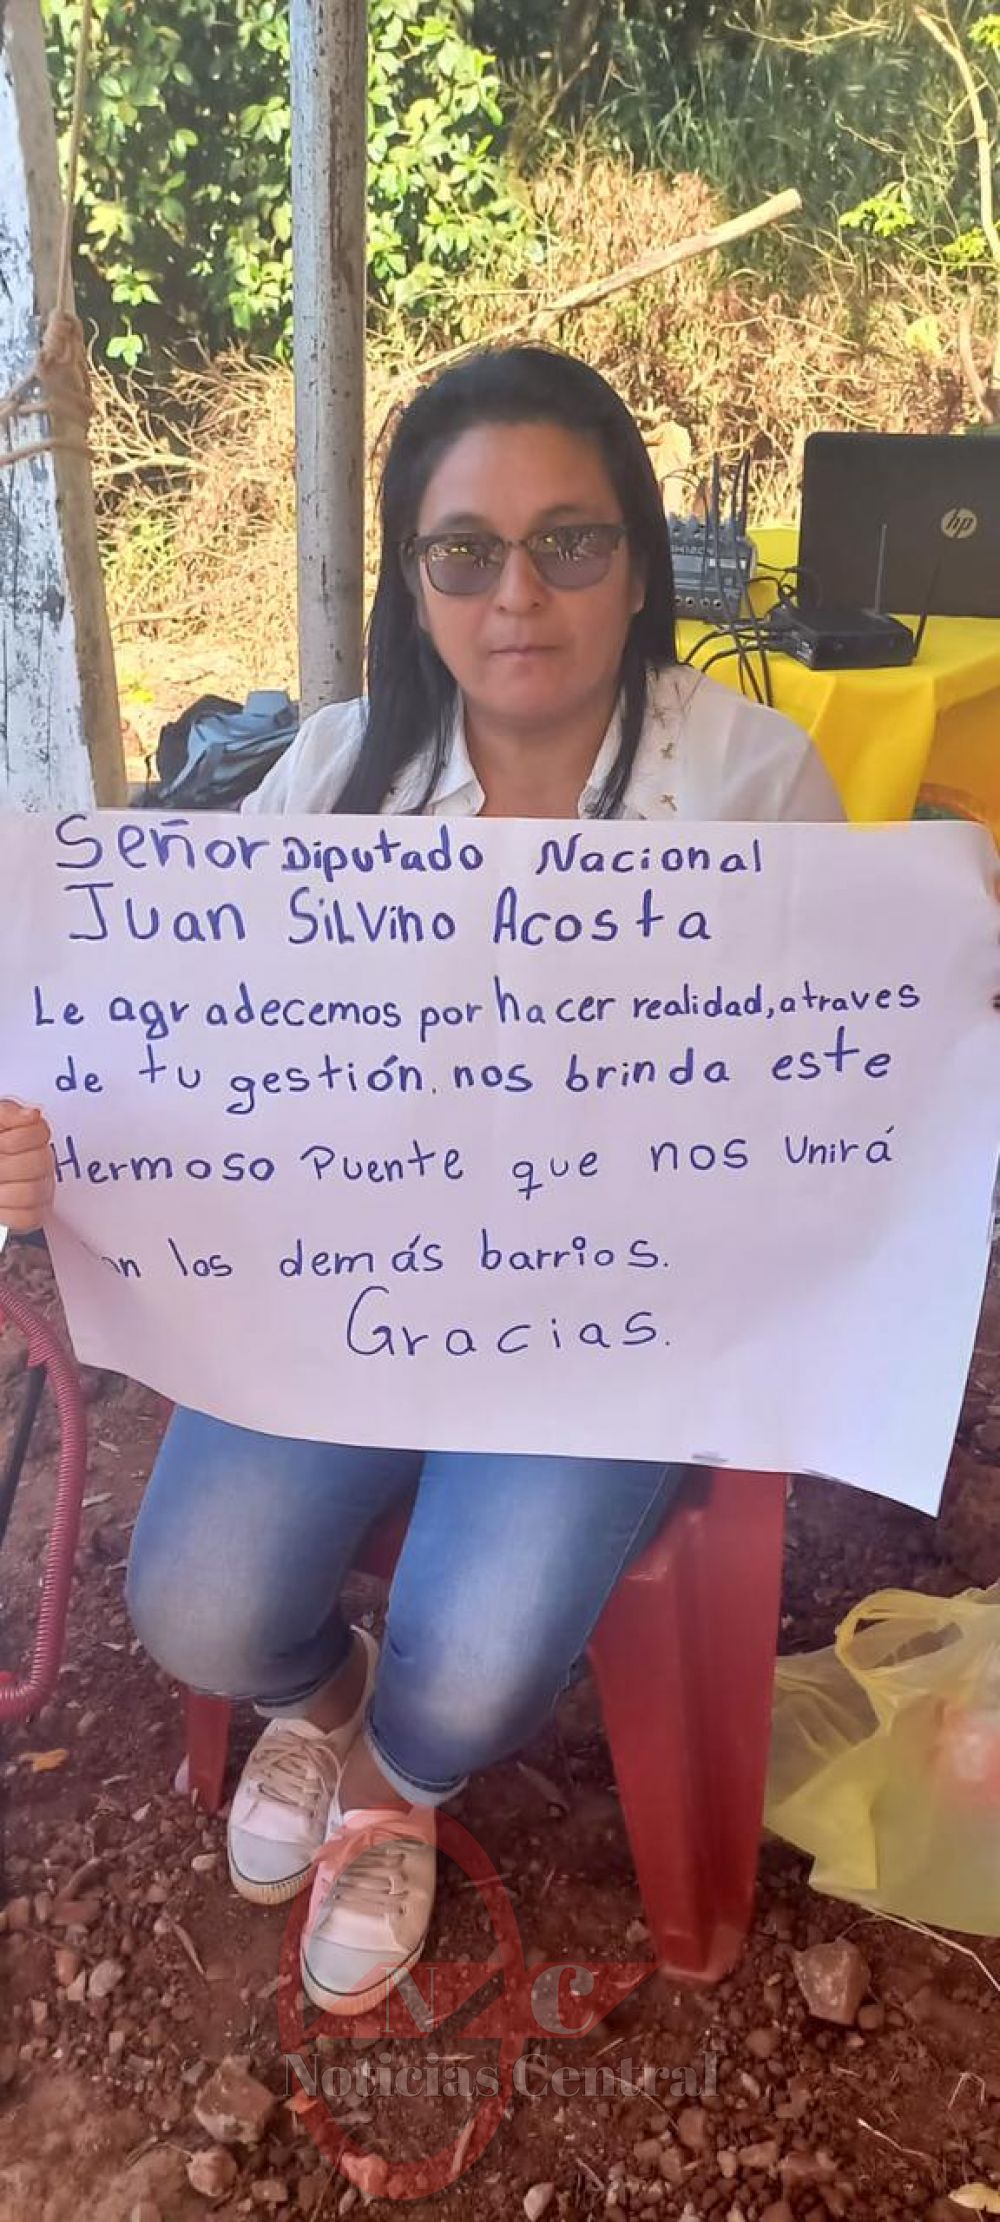 hp
Señor Diputado Nacional
Juan Silvino Acosta
Le agradecemos por hacer realidad, a traves
de tu gestión. nos brinda este
Hermoso Puente que nos Unirá
los demás barrios.
Gracias.
N C
Noticias Central